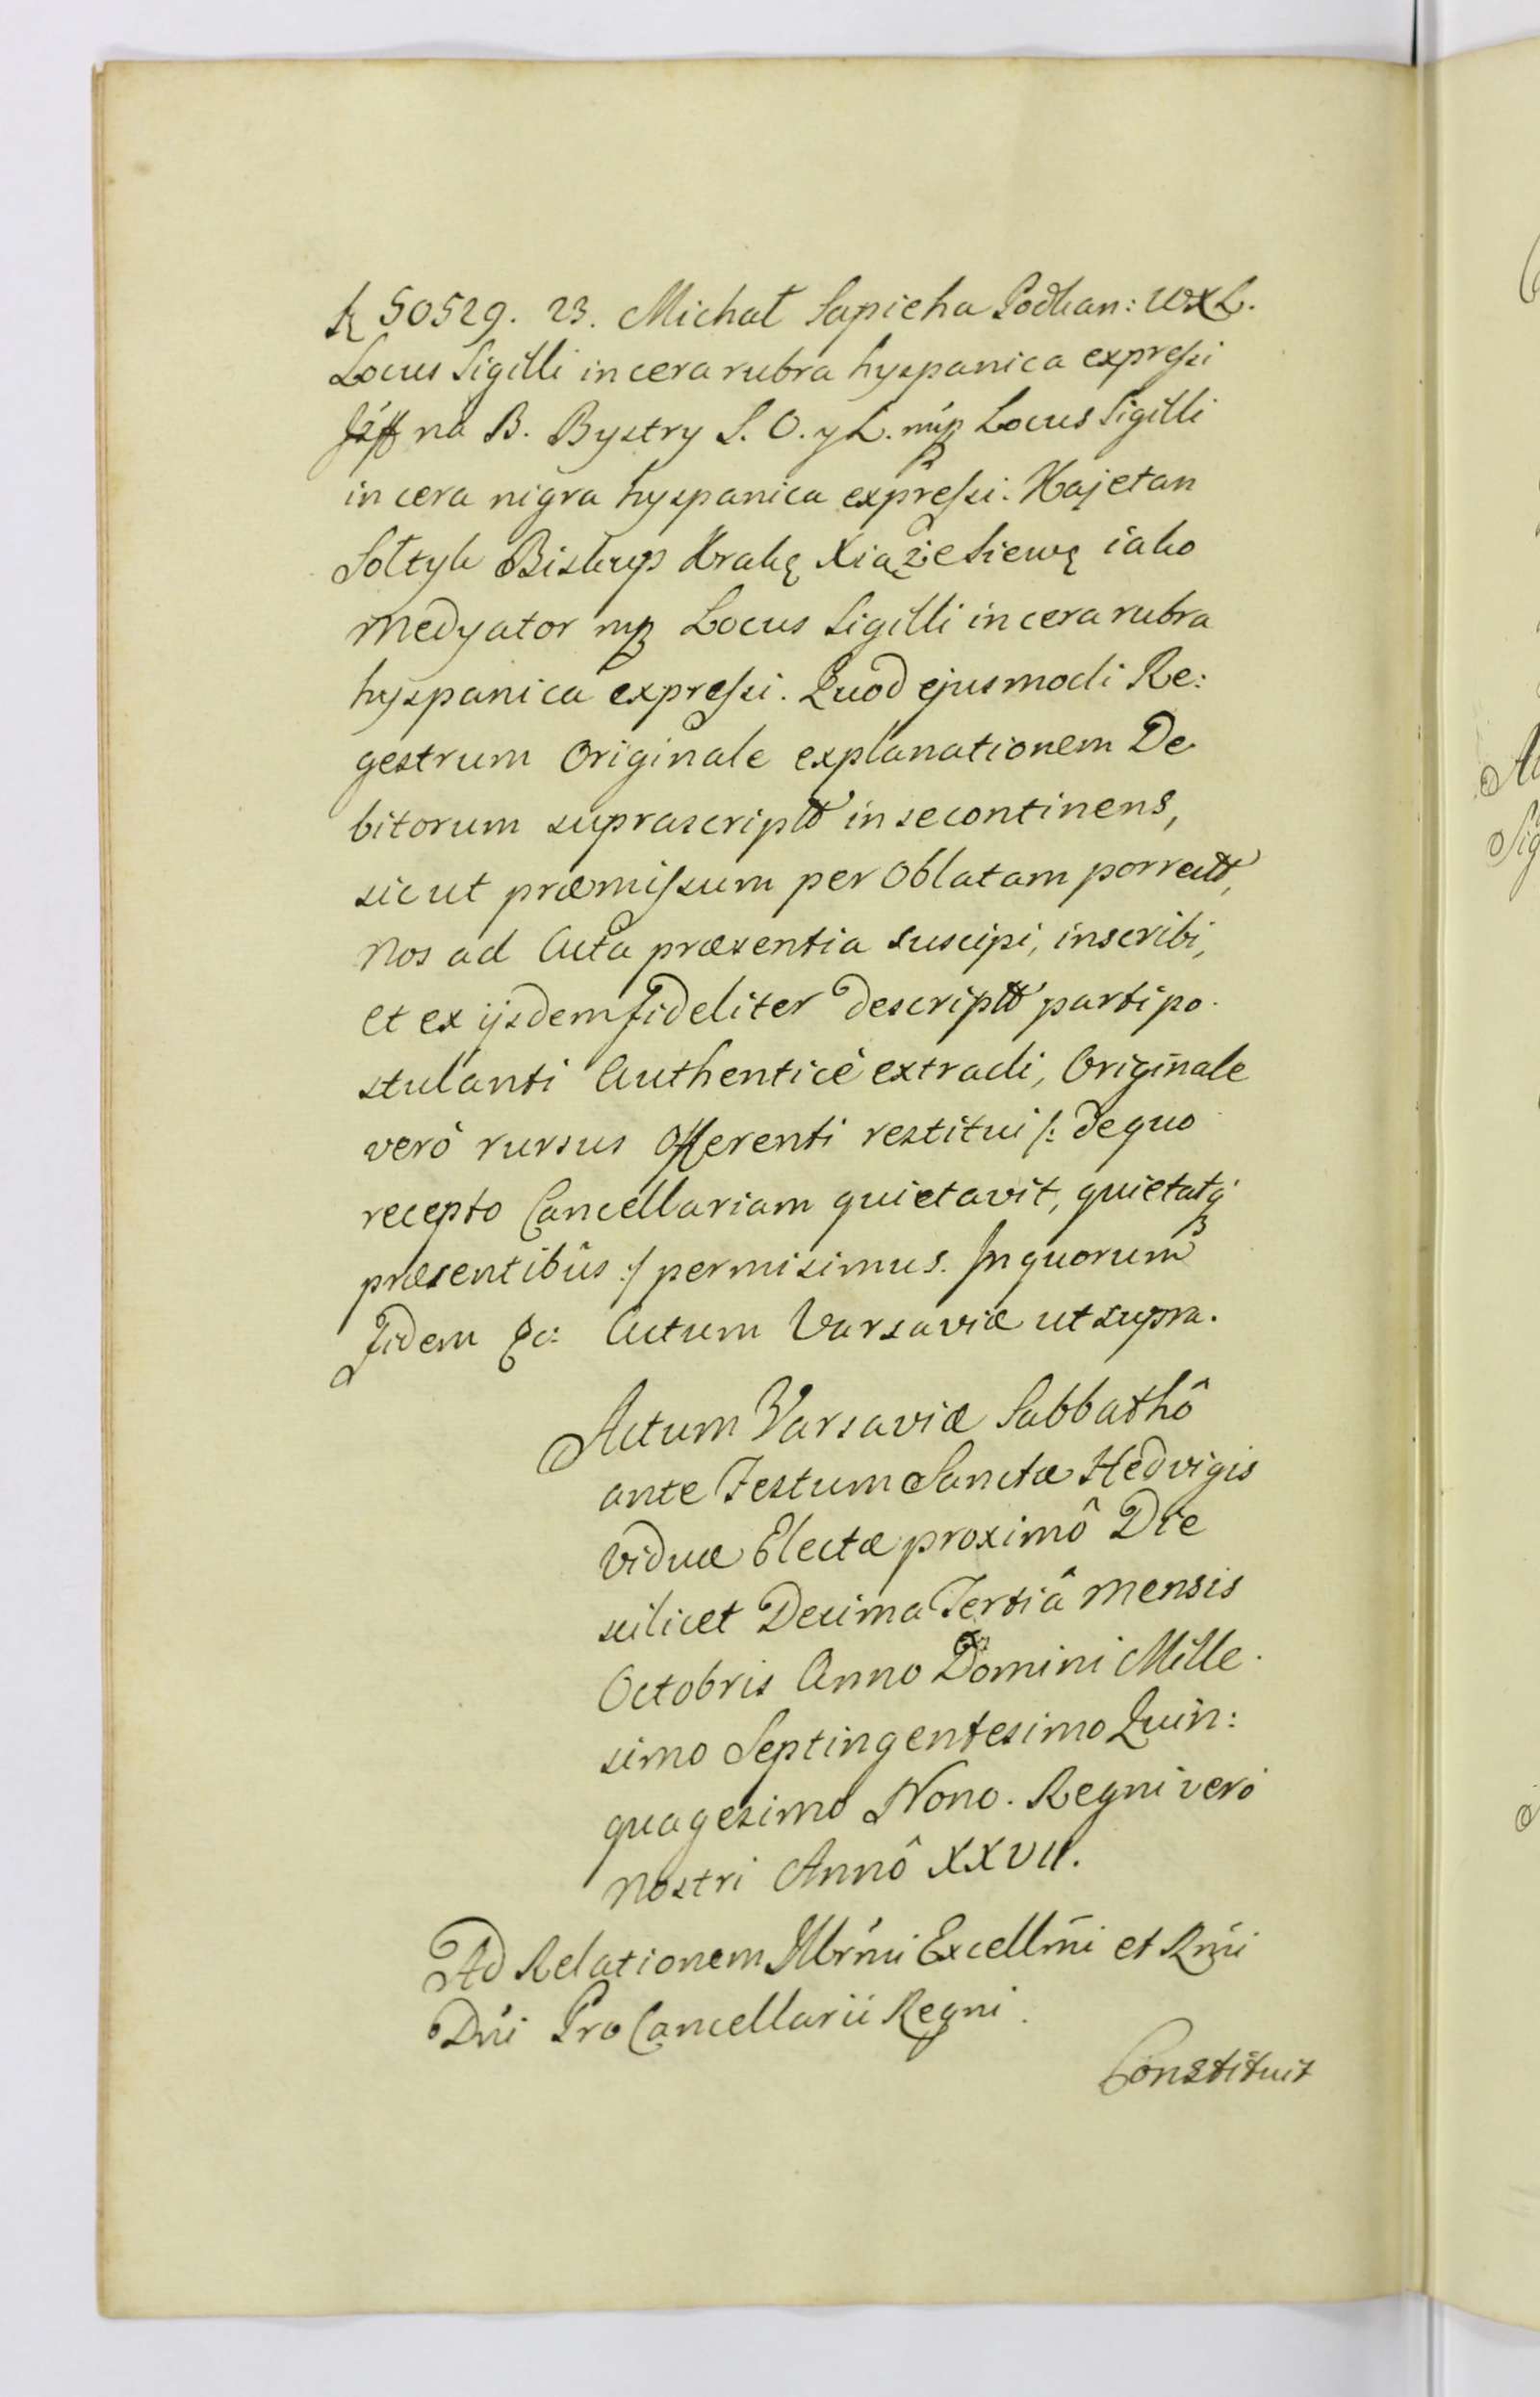 50529. 23. Michał Sapieha Podkan: WXL.
Locus Sigilli in cera rubra hyspanica expressi
na B. Bystry S. O. y L. mp Locus Sigilli
in cera nigra hyspanica expressi. Kajetan
Sołtyk Biskup Krakę Xiąże Siewę iako
Medyator mp Locus Sigilli in cera rubra
hyspanica expressi. Quod ejusmodi Re:
gestrum Originale explanationem De
bitorum suprascriptt in se continens,
sicut præmissum per Oblatam porrectt,
Nos ad Acta præsentia suscipi, inscribi,
et ex ijsdem fideliter descriptt parti po
stulanti Authenticè extradi, Originale
verò rursus Offerenti restitui /: de quo
recepto Cancellariam quietavit, quietatq
præsentibûs :/ permisimus. In quorum
Fidem &c: Actum Varsaviæ ut supra.
Actum Varsaviæ Sabbathô
ante Festum Sanctæ Hedvigis
Viduæ Electæ proximô Die
scilicet Decima Tertiâ Mensis
Octobris Anno Domini Mille
simo Septingentesimo Quin:
quagesimo Nono. Regni verò
Nostri Annô XXVII.
Ad Relationem Illrmi Excellmi et Rmi
Dni Pro Cancellarii Regni.
Constituit